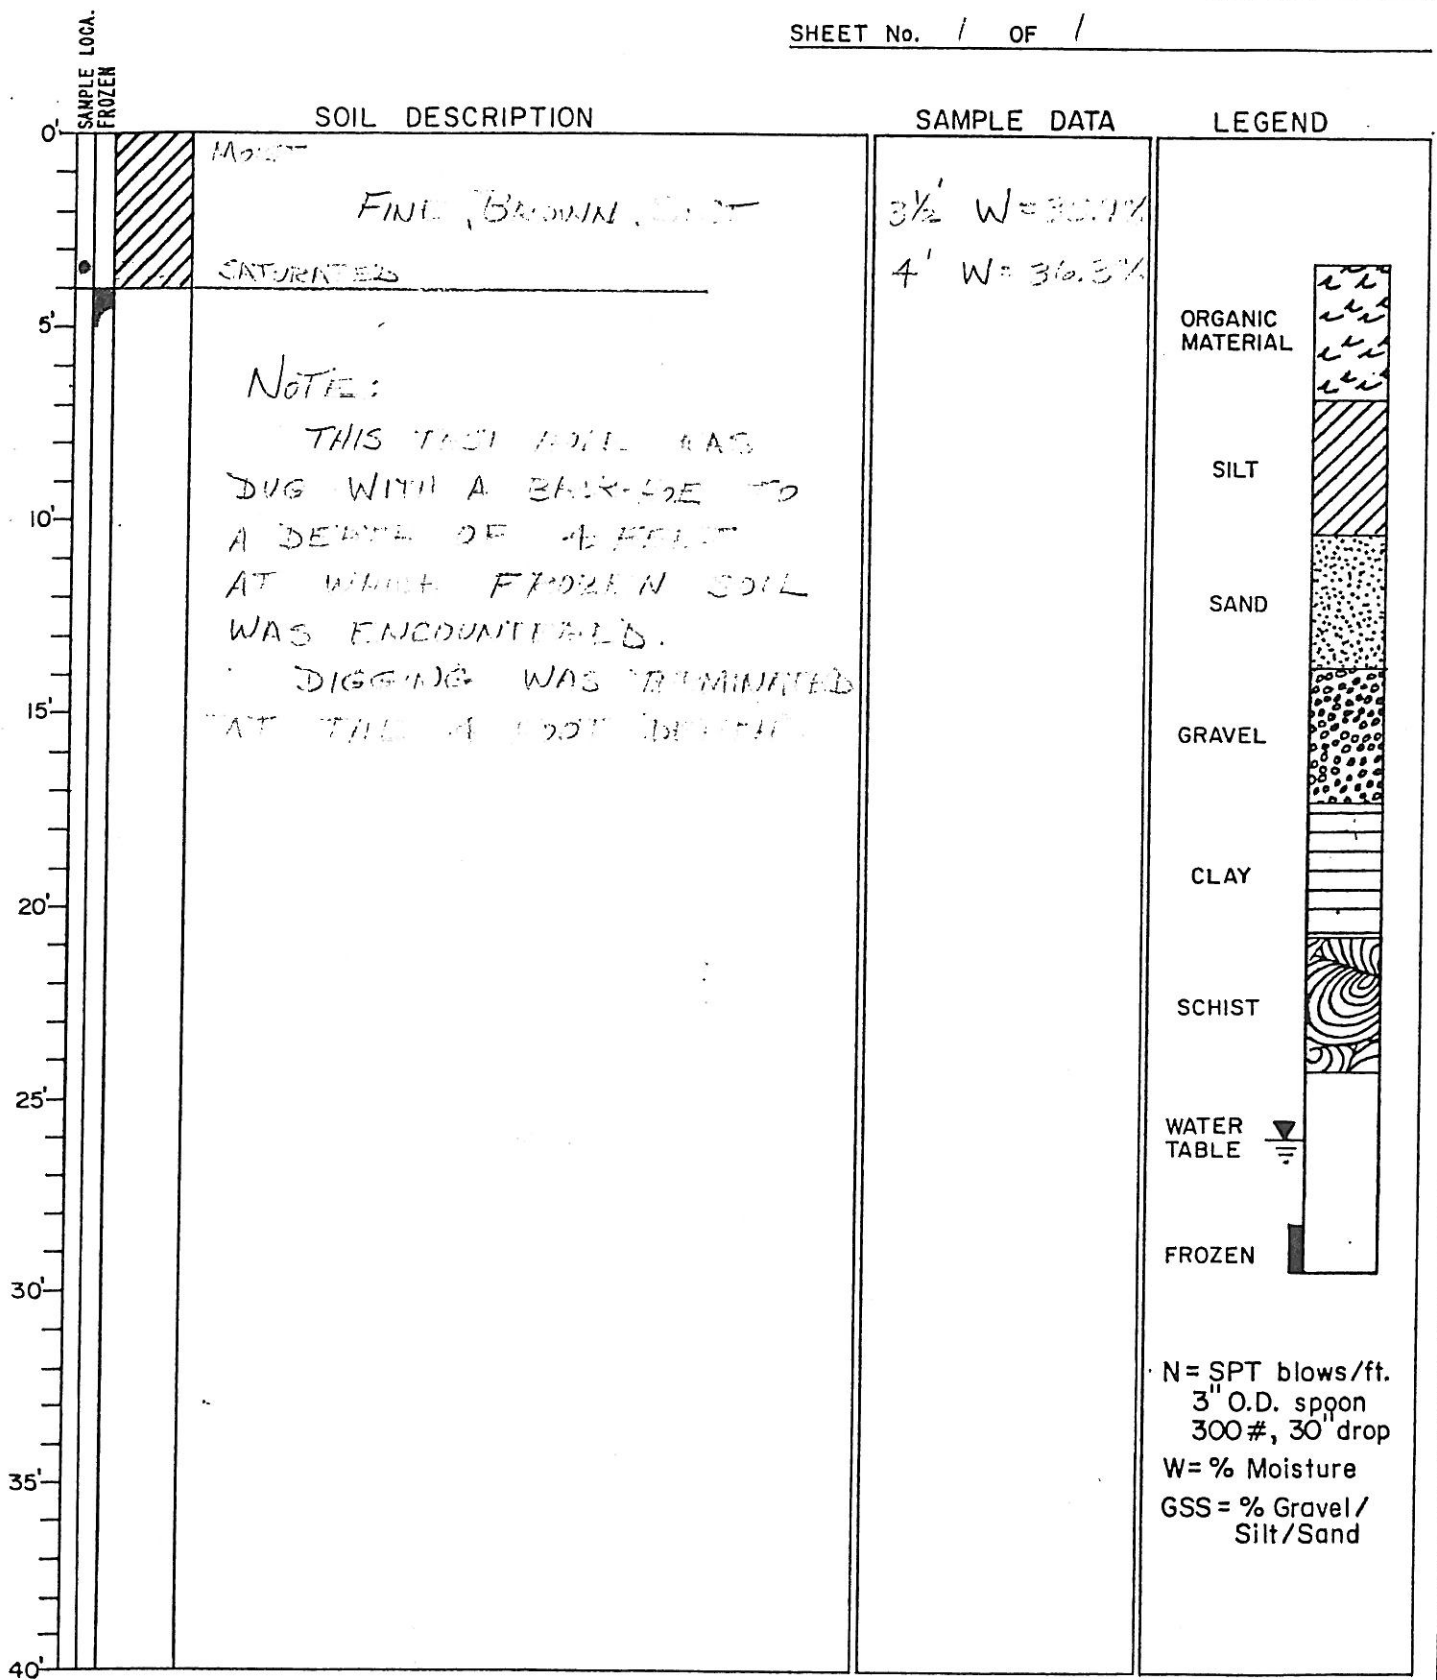 SHEET No. 1 OF 1
SAMPLE LOCA.
FROZEN
SOIL DESCRIPTION
SAMPLE DATA
LEGEND
0'
5'
10'
15'
20'
25'
30'
35'
40'
MOIST
FINE, BROWN, SILT
SATURATED
NOTE:
THIS TEST HOLE WAS
DUG WITH A BACKHOE TO
A DEPTH OF 4 FEET
AT WHICH FROZEN SOIL
WAS ENCOUNTERED.
DIGGING WAS TERMINATED
AT THE 4 FOOT DEPTH
3½' W=
4' W= 36.3%
ORGANIC
MATERIAL
SILT
SAND
GRAVEL
CLAY
SCHIST
WATER
TABLE
FROZEN
N = SPT blows/ft.
3" O.D. spoon
300#, 30" drop
W= % Moisture
GSS = % Gravel/
Silt/Sand